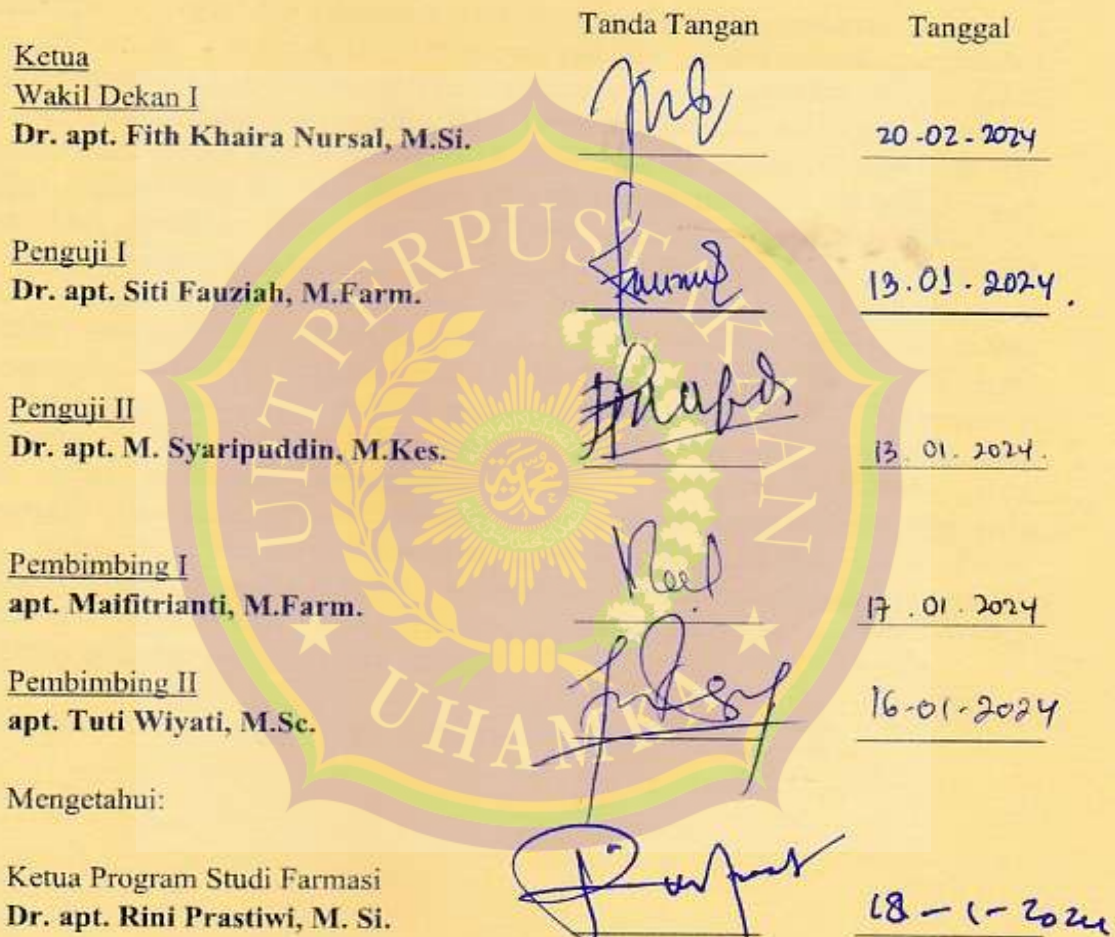 Tanda Tangan Tanggal
Ketua
Wakil Dekan I
Dr. apt. Fith Khaira Nursal, M.Si. 20-02-2024
Penguji I
Dr. apt. Siti Fauziah, M.Farm. 13.01.2024.
Penguji II
Dr. apt. M. Syaripuddin, M.Kes. 13.01.2024.
Pembimbing I
apt. Maifitrianti, M.Farm. 17.01.2024
Pembimbing II
apt. Tuti Wiyati, M.Sc. 16-01-2024
Mengetahui:
Ketua Program Studi Farmasi
Dr. apt. Rini Prastiwi, M. Si. 18-1-2024
UPT PERPUSTAKAAN
UHAMKA